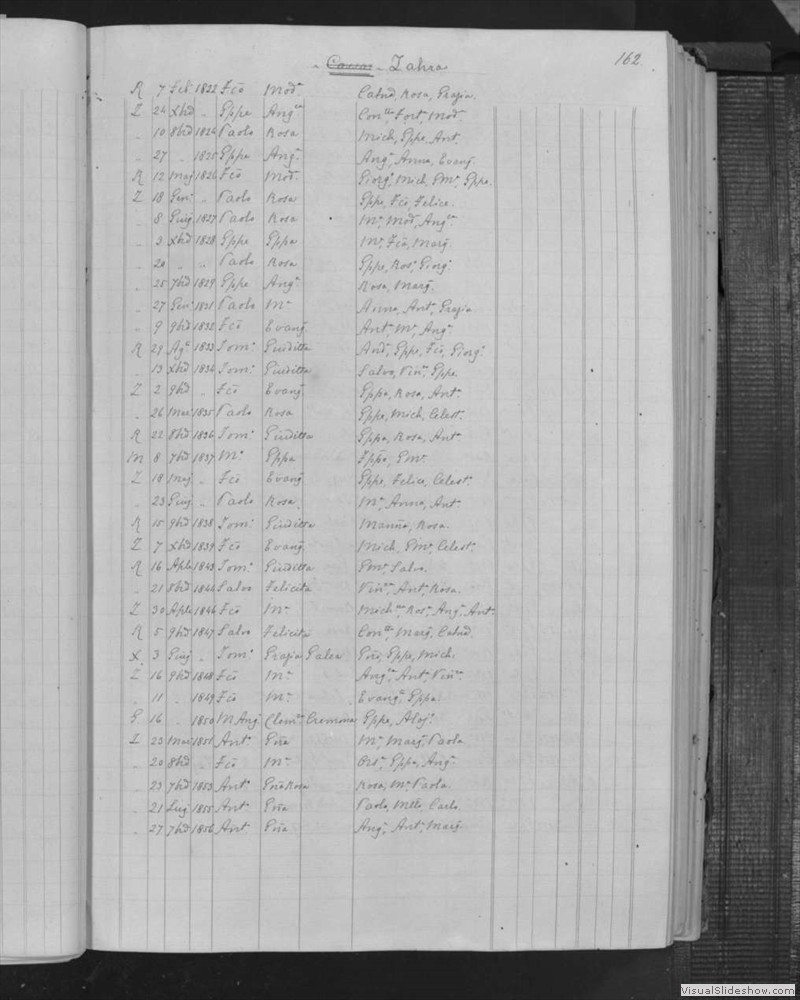 162
Cassar - Zahra
R 7 Feb 1822 Fco Mod. Catnd, Rosa, Grazia.
Z 24 Xbd " Gppe Angca Conta, Fort, Mod.
" 10 8bd 1824 Paolo Rosa Mich, Gppe, Ant.
" 27 " 1825 Gppe Anga Anga, Anna, Evang.
R 12 Mag 1826 Fco Mod. Giorgo, Mich, Gme, Gppe.
Z 18 Gen " Paolo Rosa Gppe, Fco, Felice.
" 8 Giug 1827 Paolo Rosa Ma, Mod, Angca
" 3 Xbd 1828 Gppe Gppa Ma, Fca, Marg.
" 20 " " Paolo Rosa Gppe, Rosa, Giorg.
" 25 7bd 1829 Gppe Anga Rosa, Marg.
" 27 Gen 1831 Paolo Ma Anna, Anta, Grazia
" 9 9bd 1832 Fco Evang. Anta, Ma, Anga
R 29 Ago 1833 Toma Giuditta And, Gppe, Fco, Giorg.
" 13 Xbd 1834 Toma Giuditta Salvo, Vinza, Gppe.
Z 2 9bd " Fco Evang. Gppa, Rosa, Ant.
" 26 Mar 1835 Paolo Rosa Gppe, Mich, Celest.
R 22 8bd 1836 Toma Giuditta Gppa, Rosa, Ant.
M 8 7bd 1837 Ma Gppa Gppa, Gme.
Z 18 Mag " Fco Evang. Gppe, Felice, Celest.
" 23 Giug " Paolo Rosa. Ma, Anna, Ant.
R 15 9bd 1838 Toma Giuditta Rosa.
Z 7 Xbd 1839 Fco Evang. Mich, Gme, Celest.
R 16 Aple 1843 Toma Giuditta Gme, Salvo.
" 21 8bd 1844 Salvo Felicita Vinza, Ant, Rosa.
Z 30 Aple 1846 Fco Ma Michna, Rosa, Anga, Ant.
R 5 9bd 1847 Salvo Felicita Conta, Marg, Catnd.
X. 3 Giug " Toma Grazia Galea Gio, Gppe, Mich.
Z 16 9bd 1848 Fco Ma Angca, Ant, Vinza
" 11 " 1849 Fco Ma Evanga, Gppa.
G 16 " 1850 M Ang. Clema Cremona Gppe, Aloj.
Z 23 Mar 1851 Ant. Gna Ma, Marg, Paola
" 20 8bd " Fco Ma Orsa, Gppa, Anga
" 23 7bd 1853 Ant. Gna Rosa Rosa, Ma, Paola.
" 21 Lug 1855 Ant. Gna Paolo, Carlo.
" 27 7bd 1856 Ant Gna Ang, Ant, Marg.
VisualSlideshow.com